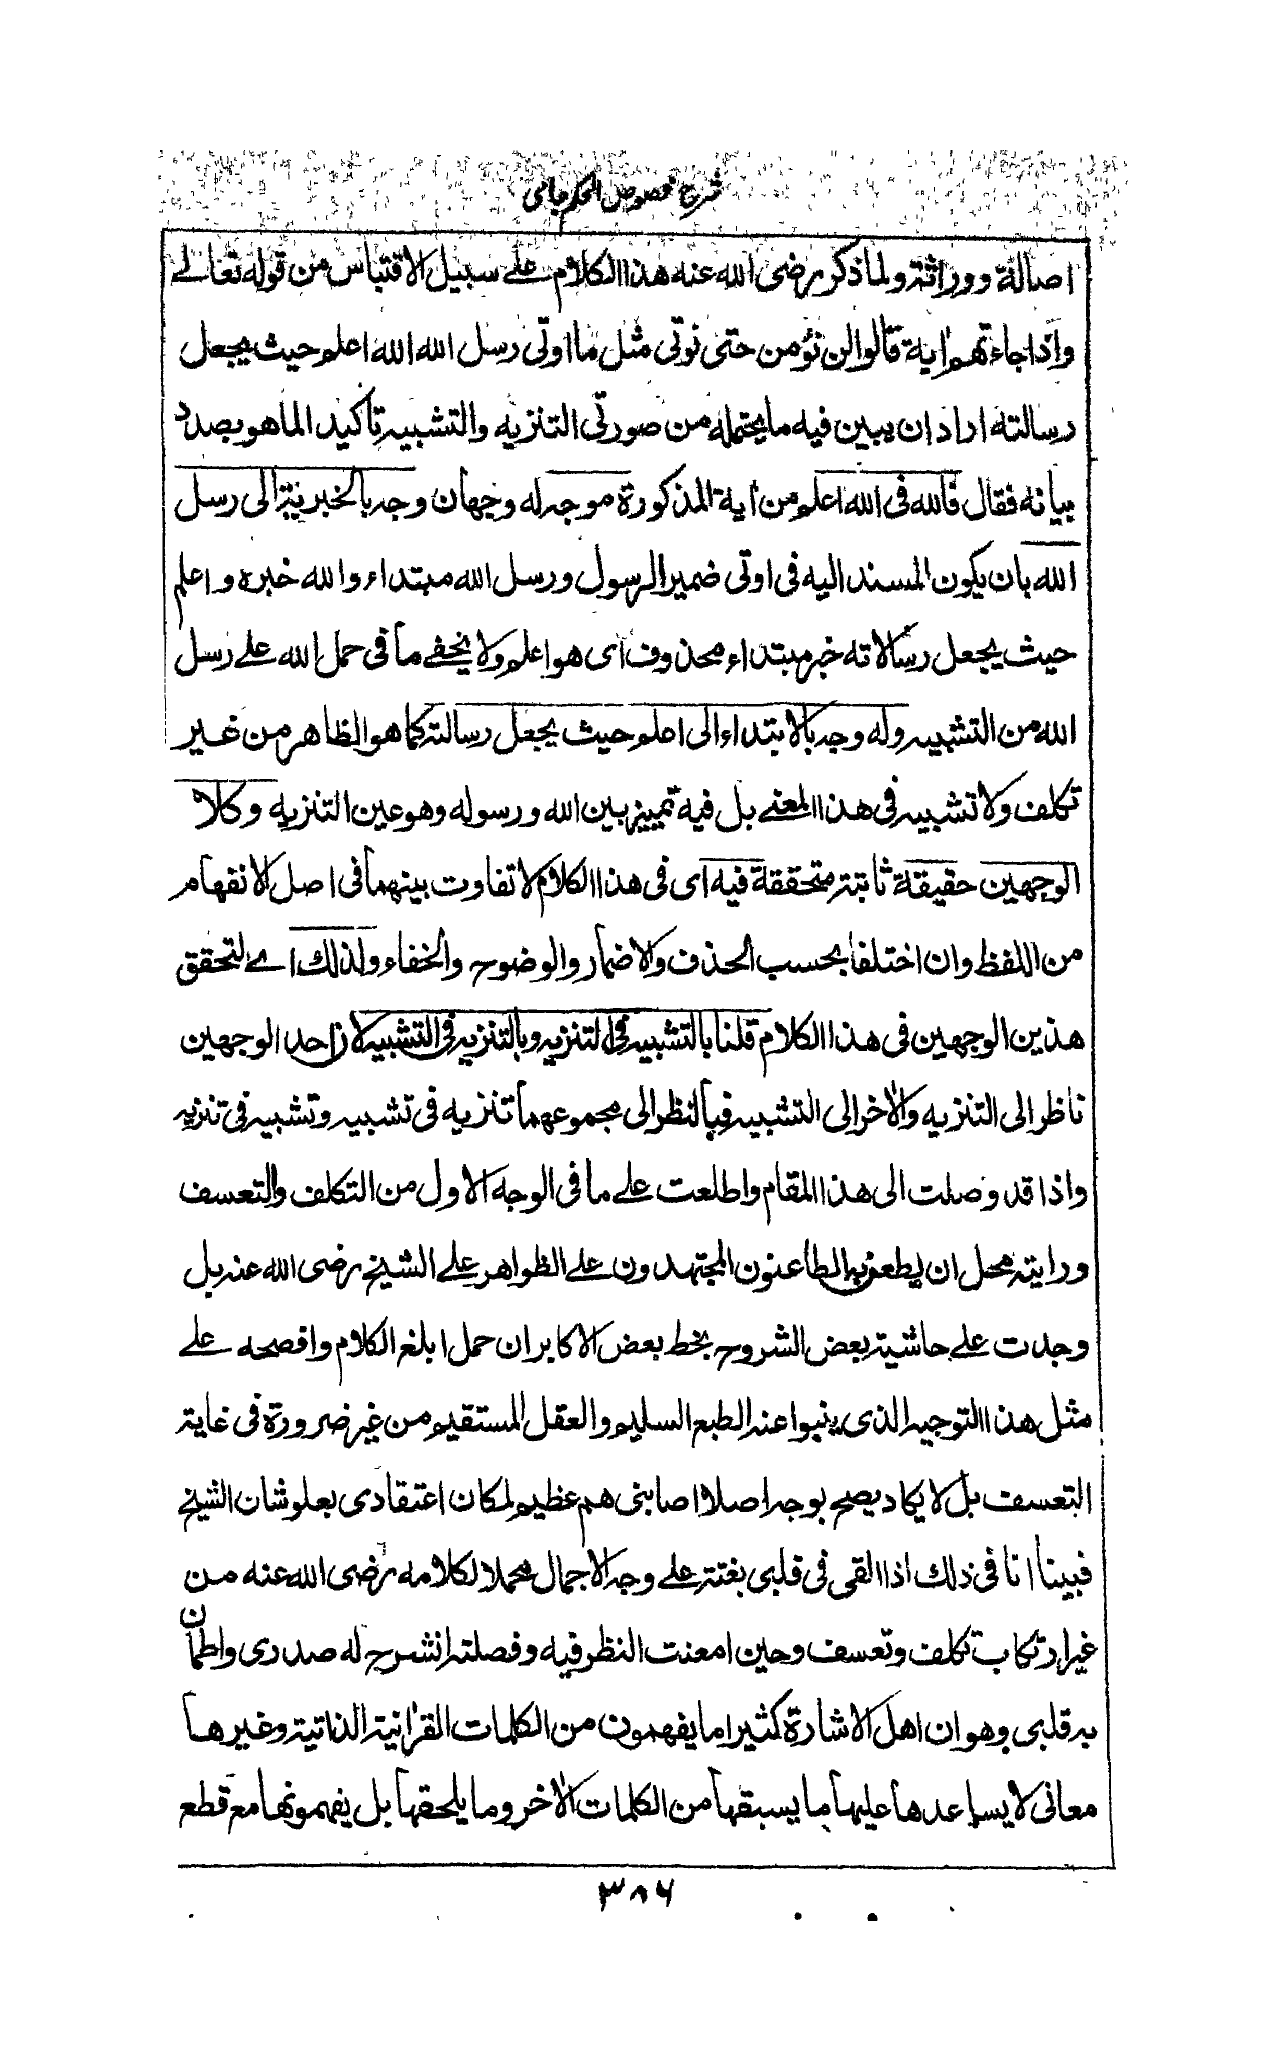 شرح فصوص الحكم جامى
اصالة ووراثة ولما ذكر رضى الله عنه هذا الكلام على سبيل الاقتباس من قوله تعالے
واذا جاءتهم اية قالوا لن نؤمن حتى نوتى مثل ما اوتى رسل الله الله اعلم حيث يجعل
رسالته اراد ان يبين فيه ما يحتمله من صورتى التنزيه والتشبيه تاكيد الما هو بصدد
بيانه فقال فالله فى الله اعلم من اية المذكورة موجه له وجهان وجه بالخبرية الى رسل
الله بان يكون المسند اليه فى اوتى ضمير الرسول ورسل الله مبتداء والله خبره واعلم
حيث يجعل رسالاته خبر مبتداء محذوف اى هو اعلم ولا يخفے ما فى حمل الله علے رسل
الله من التشبيه وله وجه بالابتداء الى اعلم حيث يجعل رسالته كما هو الظاهر من غير
تكلف ولا تشبيه فى هذا المعنے بل فيه تمييز بين الله ورسوله وهو عين التنزيه وكلا
الوجهين حقيقة ثابتة متحققة فيه اى فى هذا الكلام لا تفاوت بينهما فى اصل الانفهام
من اللفظ وان اختلفا بحسب الحذف والاضمار والوضوح والخفاء ولذلك اے لتحقق
هذين الوجهين فى هذا الكلام قلنا بالتشبيه فى التنزيه وبالتنزيه فى التشبيه لان احد الوجهين
ناظر الى التنزيه والاخر الى التشبيه فبالنظر الى مجموعهما تنزيه فى تشبيه وتشبيه فى تنزيه
واذا قد وصلت الى هذا المقام واطلعت علے ما فى الوجه الاول من التكلف والتعسف
ورايته محل ان يطعن به الطاعنون المجتهدون علے الظواهر علے الشيخ رضى الله عنه بل
وجدت علے حاشية بعض الشروح بخط بعض الاكابر ان حمل ابلغ الكلام وافصحه علے
مثل هذا التوجيه الذى ينبوا عنه الطبع السليم والعقل المستقيم من غير ضرورة فى غاية
التعسف بل لا يكاد يصح بوجه اصلا اصابنى هم عظيم لمكان اعتقادى بعلو شان الشيخ
فبينا انا فى ذلك اذا القى فى قلبى بغتة علے وجه الاجمال محملا لكلامه رضى الله عنه من
غير ارتكاب تكلف وتعسف وحين امعنت النظر فيه وفصلته انشرح له صدرى واطمان
به قلبى وهو ان اهل الاشارة كثيرا ما يفهمون من الكلمات القرانية الذاتية وغيرها
معانى لا يساعدها عليها ما يسبقها من الكلمات الاخر وما يلحقها بل يفهمونها مع قطع
٣٨٦